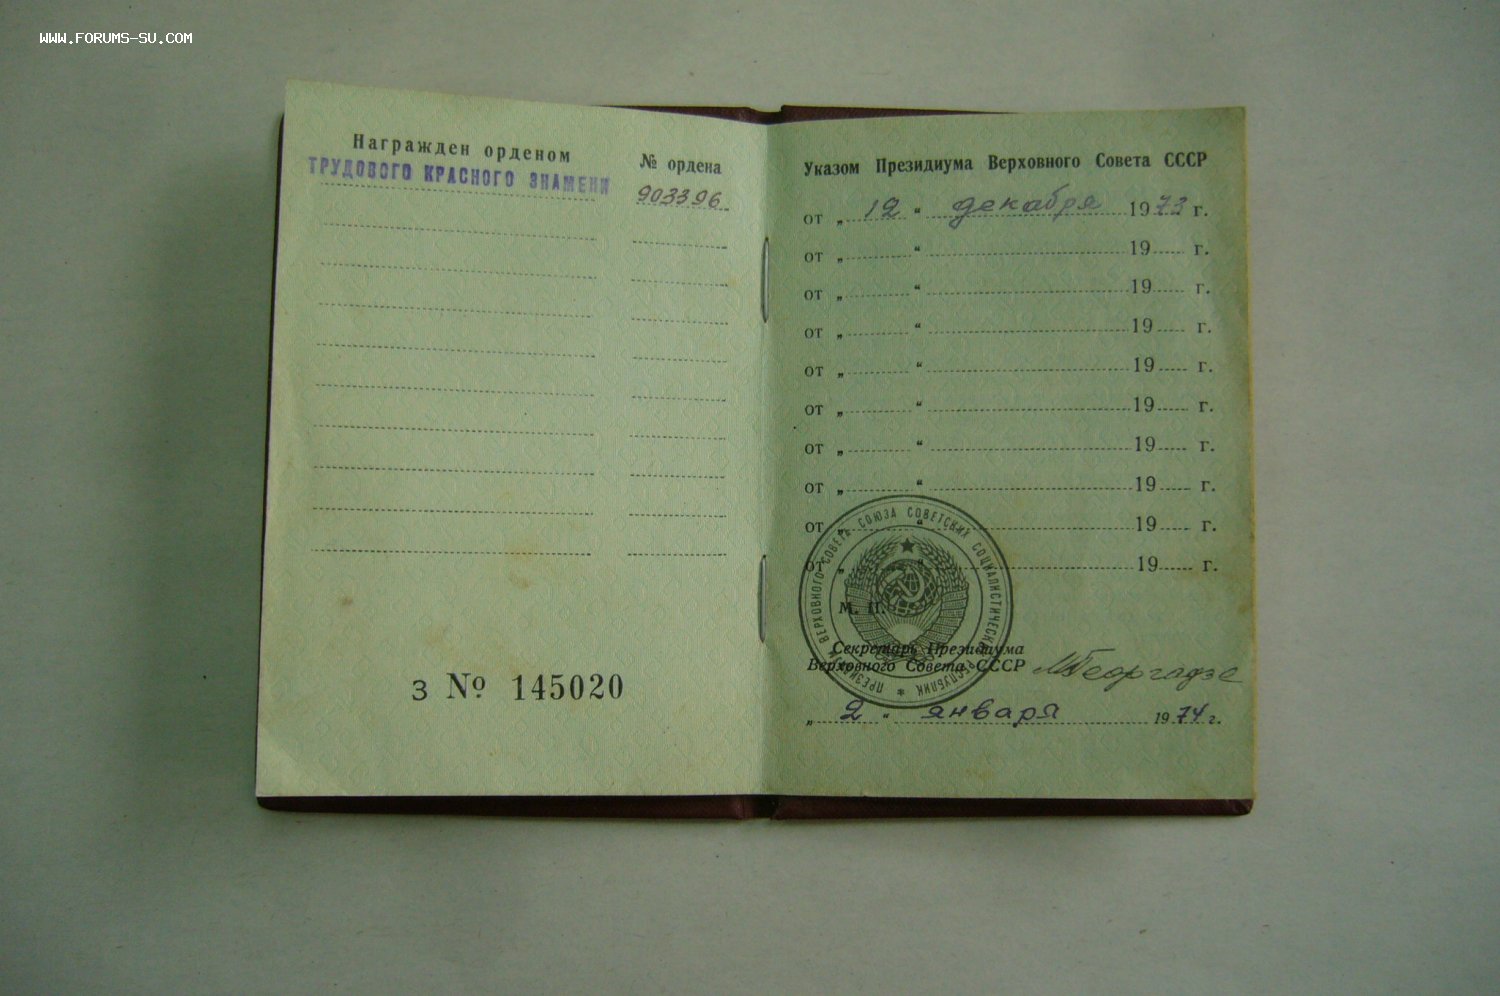 WWW.FORUMS-SU.COM
Награжден орденом
№ ордена
ТРУДОВОГО КРАСНОГО ЗНАМЕНИ
903396
З № 145020
Указом Президиума Верховного Совета СССР
от „ 12 “ декабря 1973 г.
от „ “ 19 г.
от „ “ 19 г.
от „ “ 19 г.
от „ “ 19 г.
от „ “ 19 г.
от „ “ 19 г.
от „ “ 19 г.
от „ “ 19 г.
от „ “ 19 г.
ПРЕЗИДИУМ ВЕРХОВНОГО СОВЕТА СОЮЗА СОВЕТСКИХ СОЦИАЛИСТИЧЕСКИХ РЕСПУБЛИК
М. П.
Секретарь Президиума
Верховного Совета СССР МГеоргадзе
„ 2 “ января 1974 г.